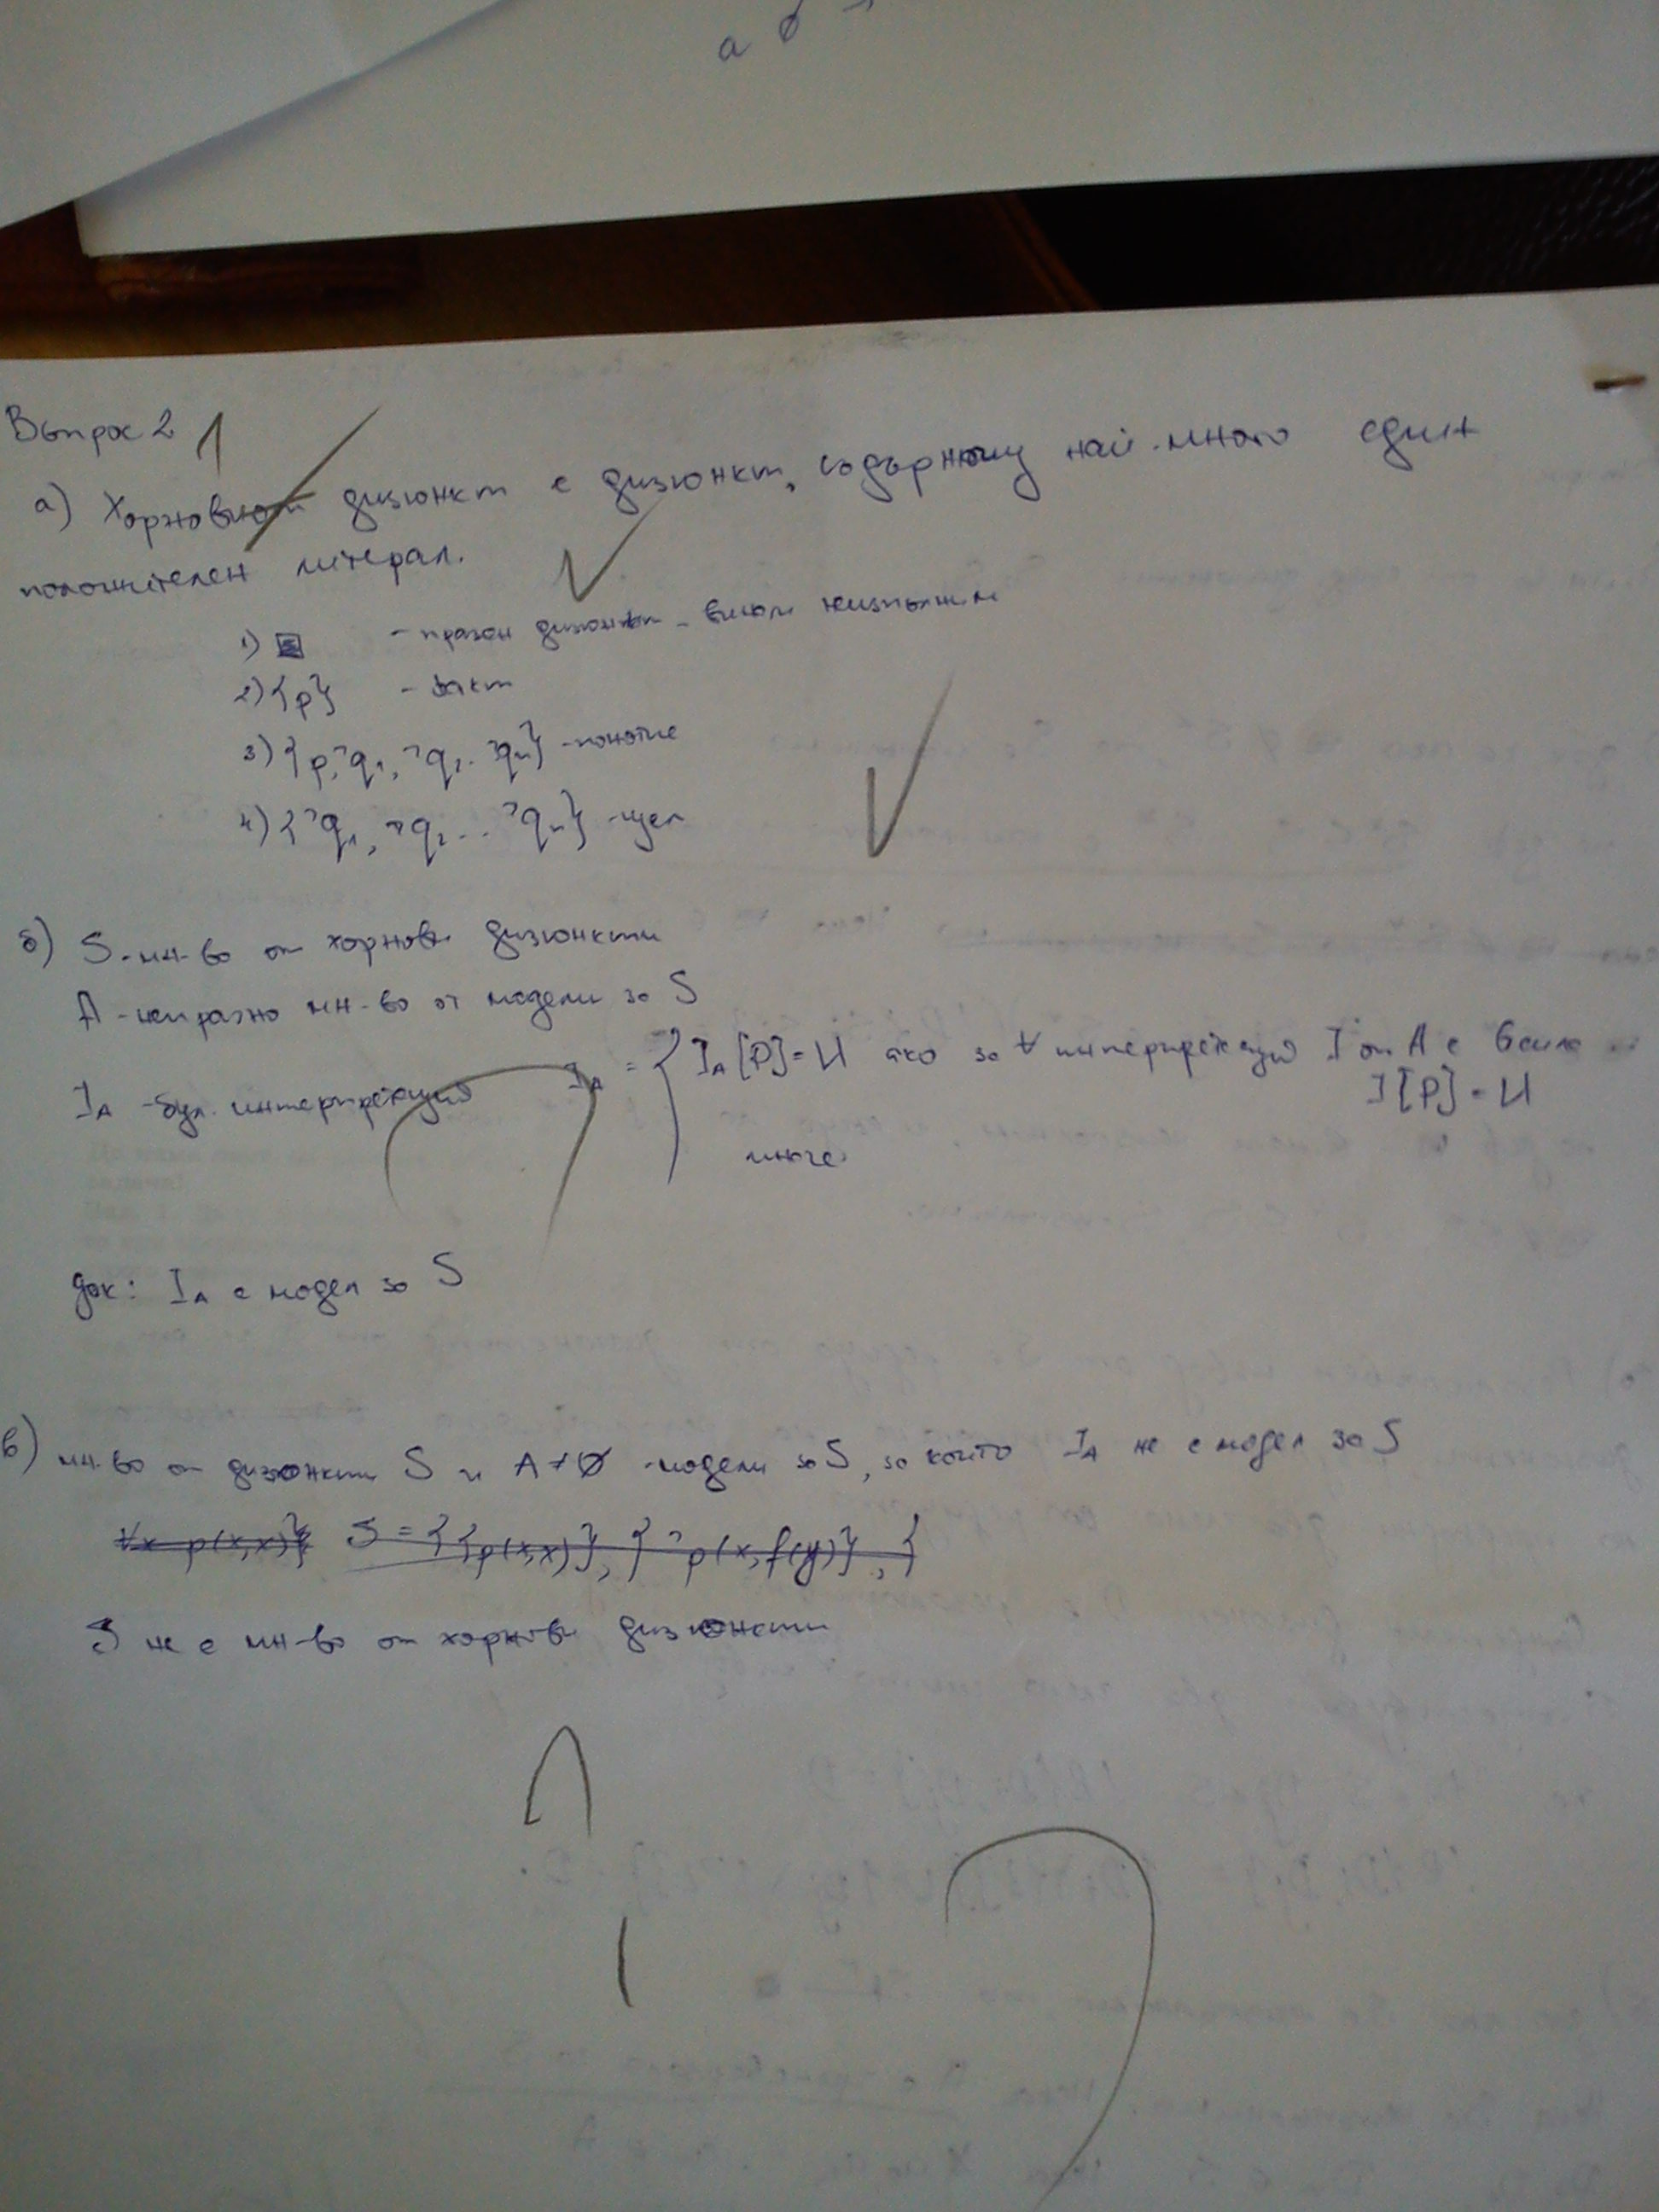 а б
Въпрос 2 1
а) Хорнов дизюнкт е дизюнкт, съдържащ най-много един
положителен литерал.
1) ▣ - празен дизюнкт - винаги неизпълним
2) {p} - факт
3) {p, ¬q₁, ¬q₂.. ¬qₙ}
4) {¬q₁, ¬q₂... ¬qₙ} - цел
б) S - мн-во от хорнови дизюнкти
A - непразно мн-во от модели за S
I_A - бул. интерпретация I_A = { I_A[P]=И ако за ∀ интерпретация I от A е
I[P]=И
иначе
док: I_A е модел за S
в) мн-во от дизюнкти S и A≠∅ - модели за S, за които I_A не е модел за S
∀x p(x,x)} S={{p(x,x)}, {¬p(x,f(y)}, {
S не е мн-во от хорнови дизюнкти